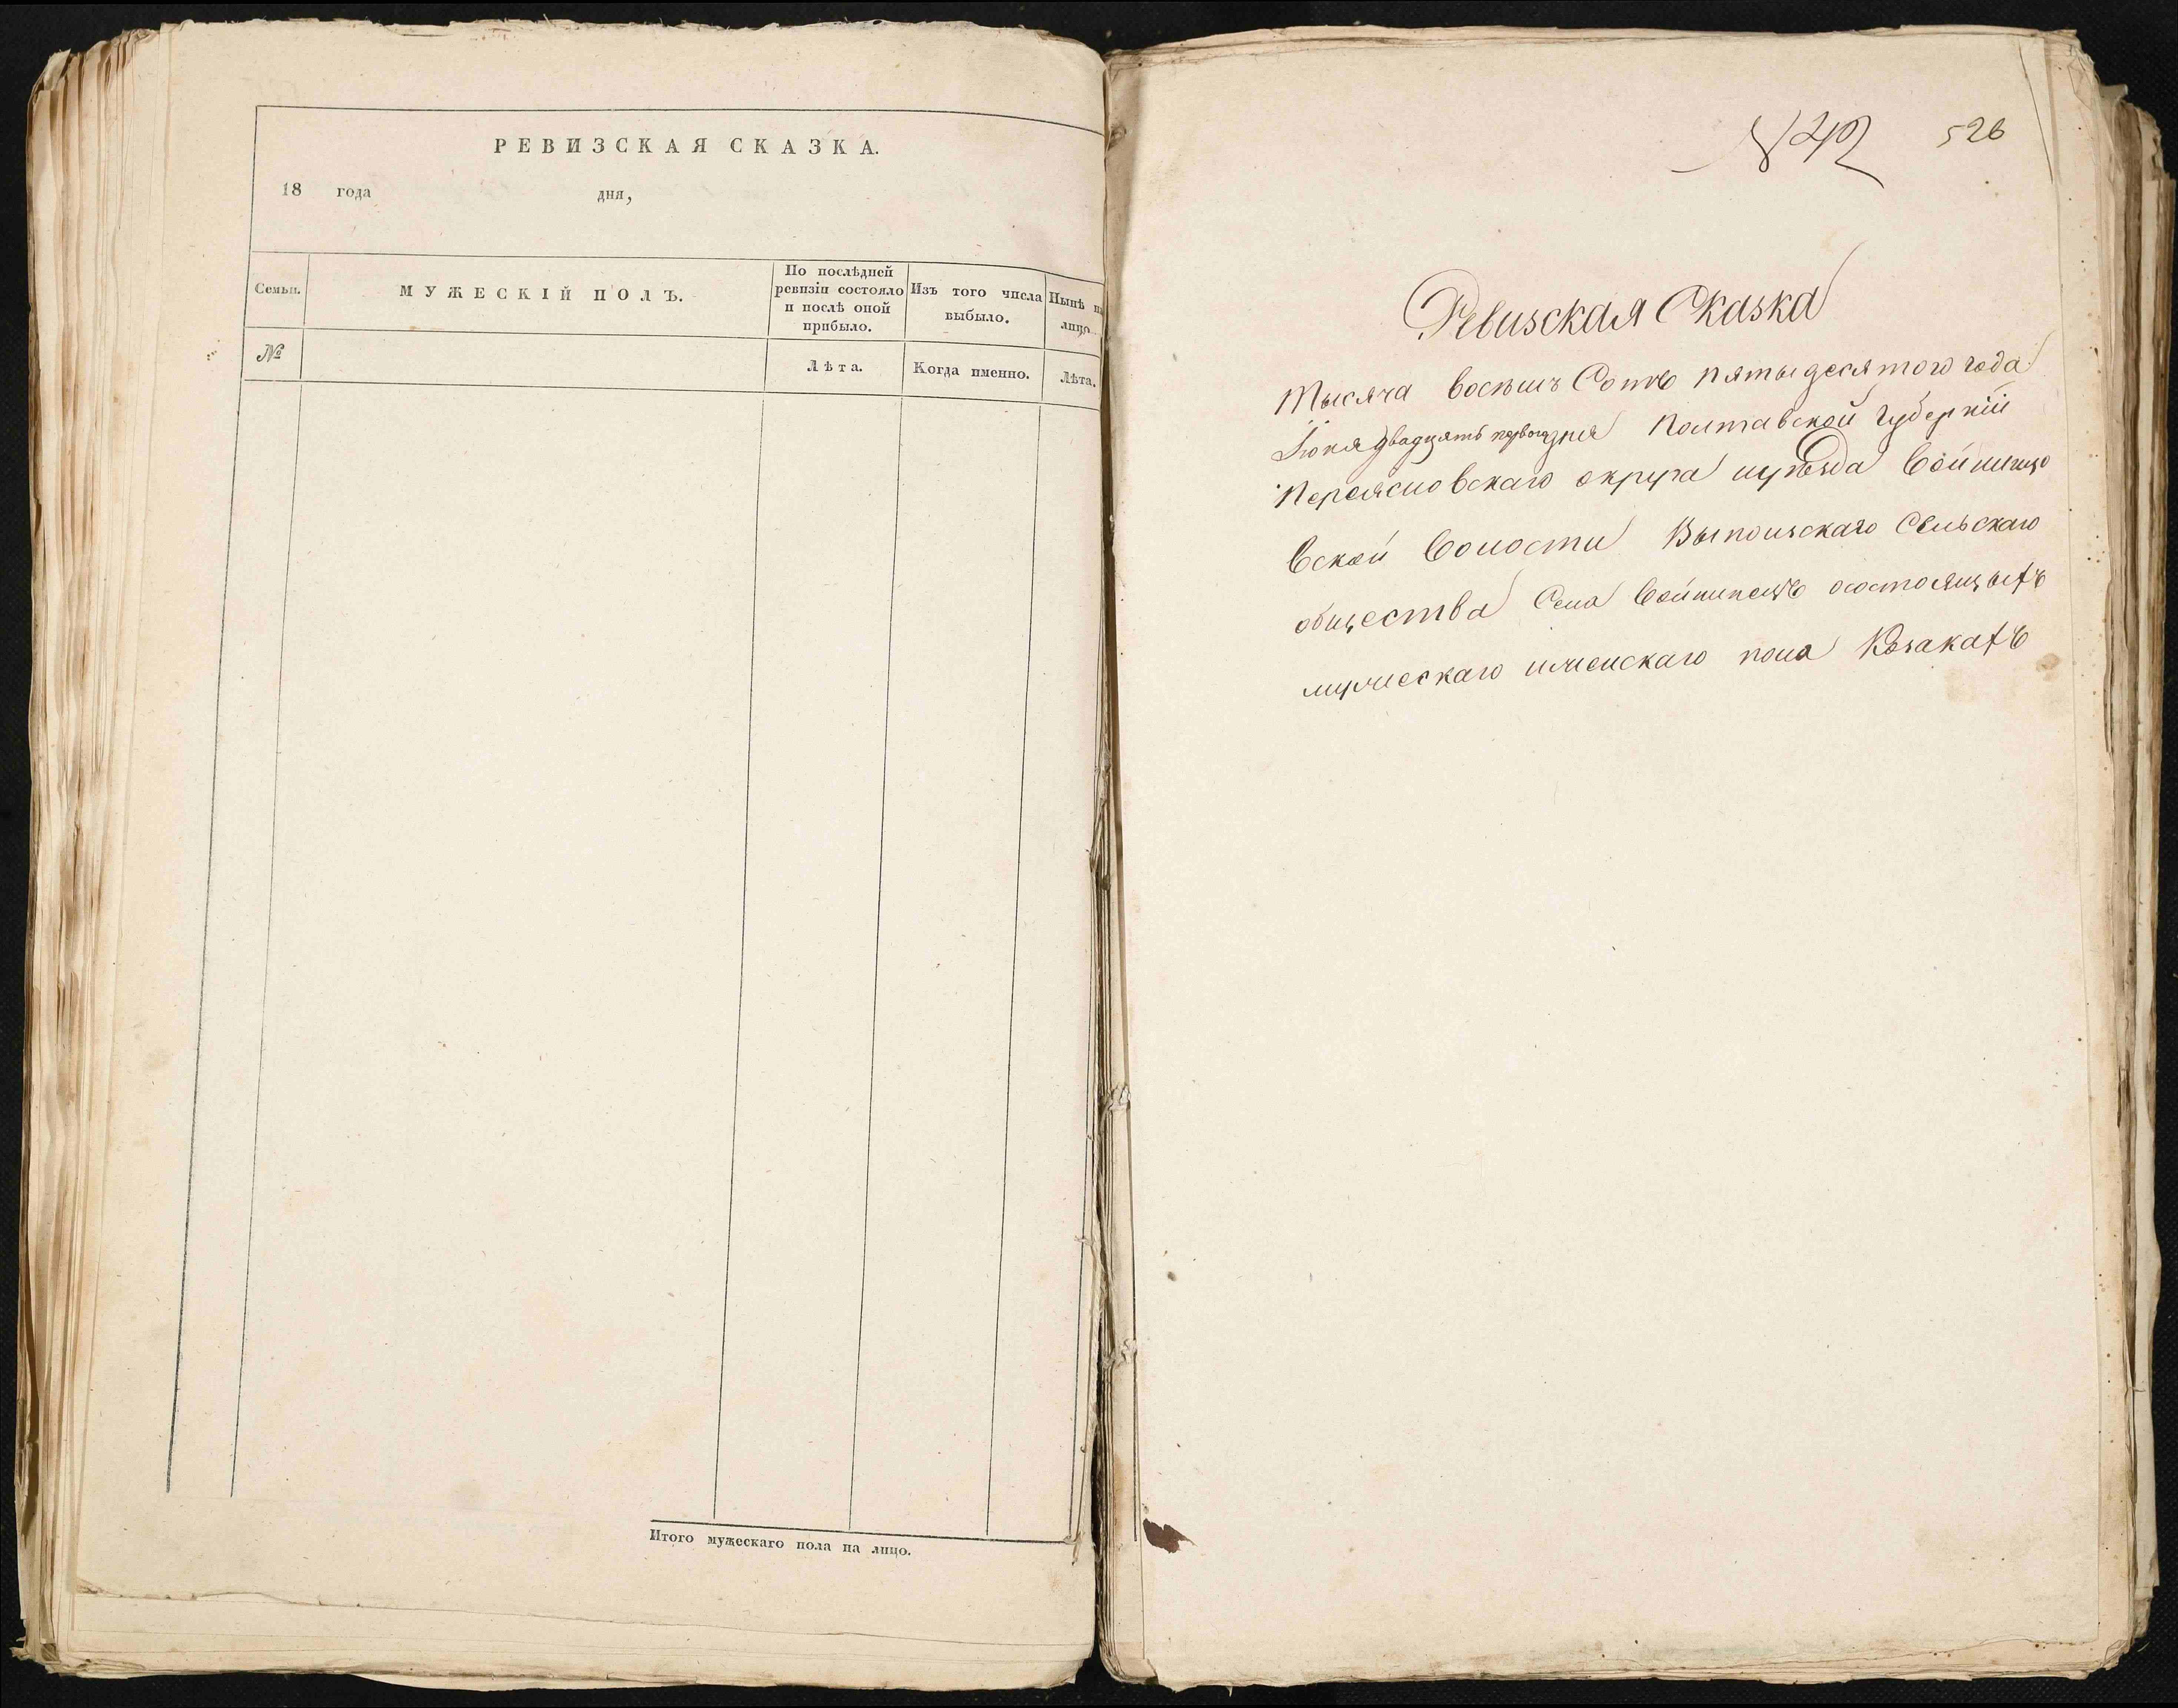 РЕВИЗСКАЯ СКАЗКА.
18 года дня,
Семьи.
МУЖЕСКІЙ ПОЛЪ.
По послѣдней
ревизіи состояло
и послѣ оной
прибыло.
Изъ того числа
выбыло.
Нынѣ на
лицо.
№
Лѣта.
Когда именно.
Лѣта.
Итого мужескаго пола на лицо.
№ 42
526
Ревизская Сказка
Тысяча восемъ Сотъ пятыдесятого года
Іюня двадцять первого дня Полтавской Губерніи
Переясловскаго округа иуѣзда Войнинцо
вской Волости Выползскаго Сельскаго
общества Села Войнинецъ осостоящыхъ
мужескаго иженскаго пола Козакахъ